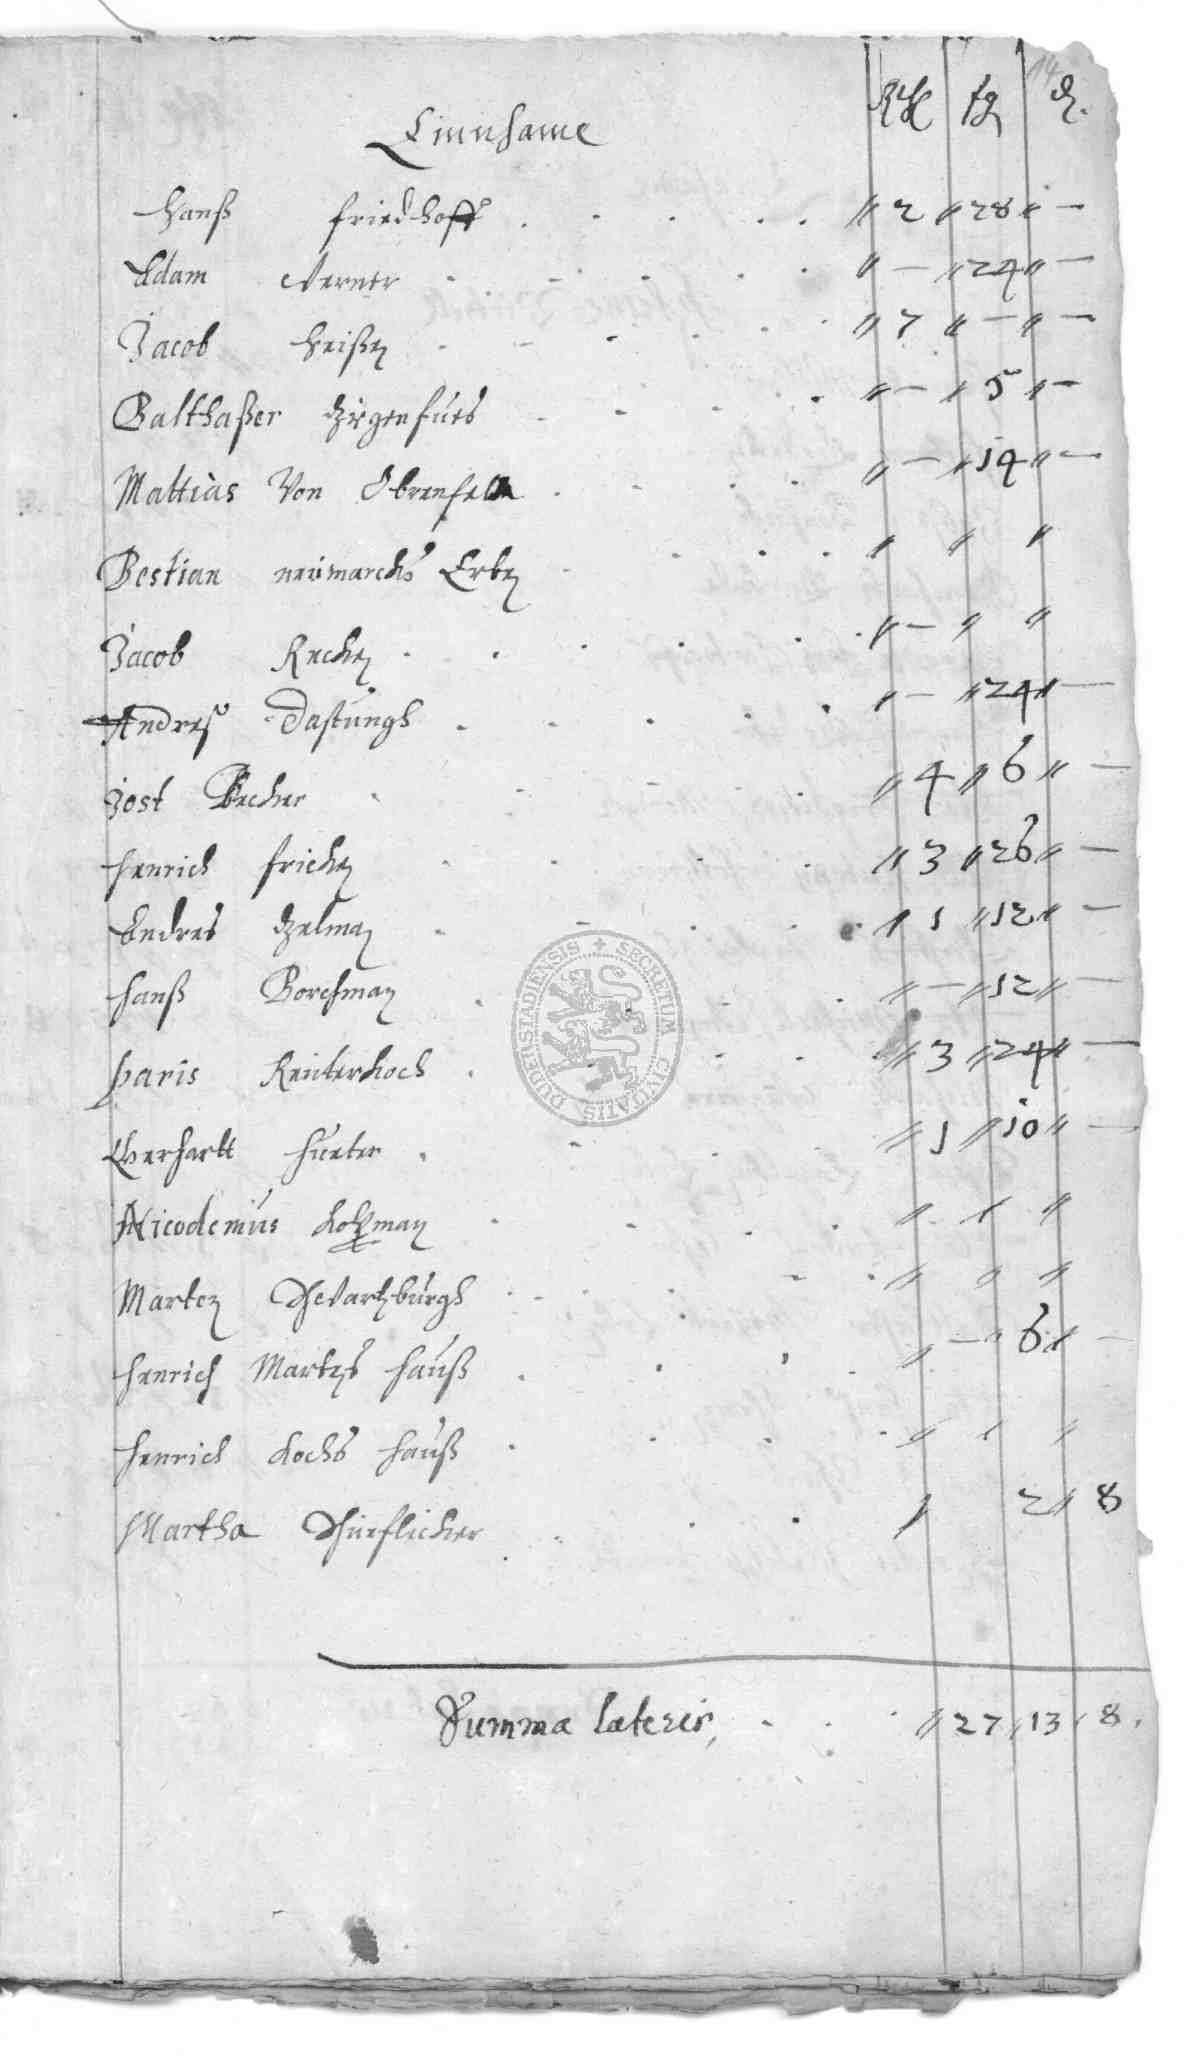 14
Einnhame Rthl fg ₰.
Hanß friedhoff . . . . . . // 2 // 28 // —
Adam Werner . . . . . // — // 24 // —
Jacob Heißen . . . . . // 7 // — // —
Balthaßer Zigenfues . . . . // — // 5 // —
Mattias Von Obrenfeld . . . // — // 14 // —
Bestian neimarcks Erben . . . // // //
Jacob Recken . . . . . // — // //
Andreß Dastungh . . . . . // — // 24 // —
Jost Becker . . . . // 4 // 6 // —
Henrich fricken . . . . // 3 // 26 // —
Andres Helman . . . . // 1 // 12 // —
Hanß Borchman . . . // — // 12 // —
Paris Reuterkoch . . . // 3 // 24 // —
Gerhartt Hueter . . . // 1 // 10 // —
Nicodemus Kohman . . . // // //
Marten Schwartzburgh . . . // // //
Henrich Martens Hauß . . . // — // 6 // —
Henrich Kochs Hauß . . . // // //
Martha Schuflicker . . . // 2 // 8
Summa lateris, . . . // 27 // 13 // 8.
SECRETUM CIVITATIS DUDERSTADIENSIS